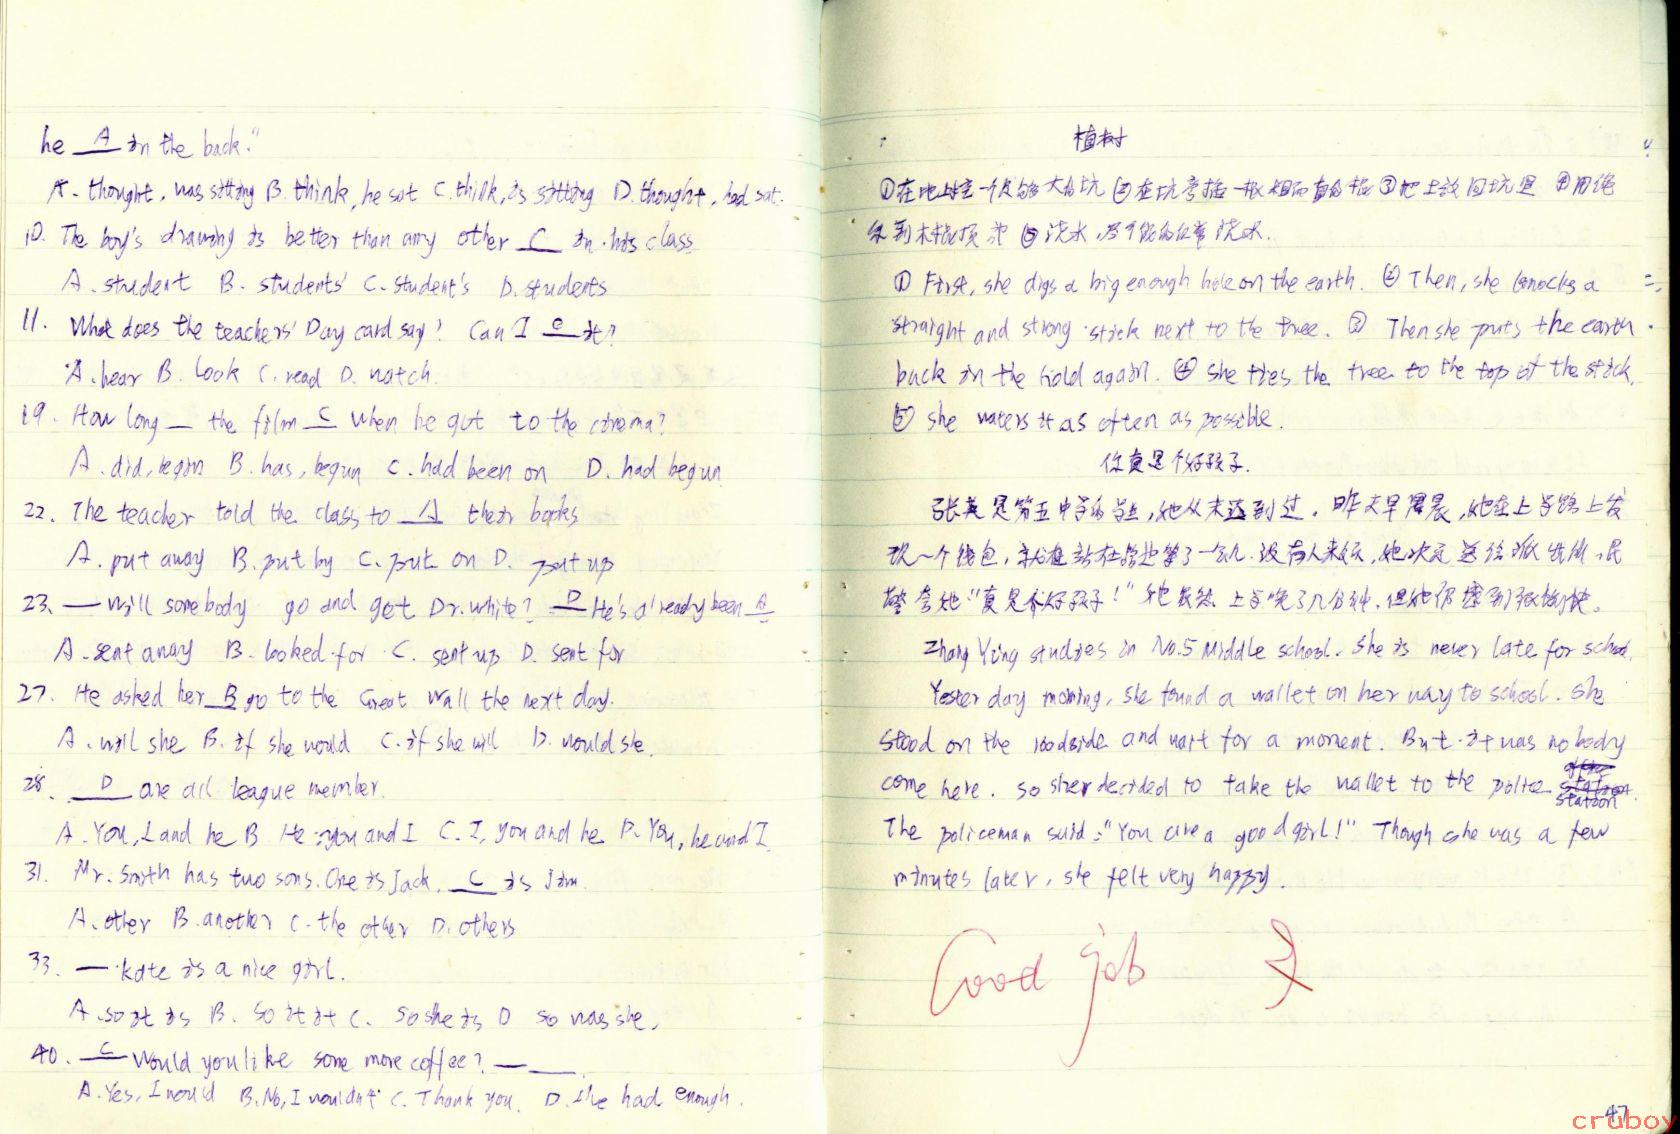 he A in the back."
A. thought, was sitting B. think, he sat C. think, is sitting D. thought, had sat.
10. The boy's drawing is better than any other C in his class
A. student B. students' C. student's D. students
11. What does the teachers' Day card say? Can I c it?
A. hear B. Look C. read D. watch.
19. How long — the film C when he got to the cinema?
A. did, begin B. has, begun C. had been on D. had begun
22. The teacher told the class to A their books
A. put away B. put by C. put on D. put up
23. — Will somebody go and get Dr. white? D He's already been A
A. sent away B. looked for C. sent up D. sent for
27. He asked her B go to the Great Wall the next day.
A. will she B. if she would C. if she will D. would she.
28. D are all league member.
A. You, I and he B. He, you and I C. I, you and he D. You, he and I
31. Mr. Smith has two sons. One is Jack. C is Jim.
A. other B. another C. the other D. others
33. — Kate is a nice girl.
A. so it is B. So it it C. So she is D so was she,
40. C Would you like some more coffee? —
A. Yes, I would B. No, I wouldn't C. Thank you. D. I've had enough.
植树
①在地上挖一个足够大的坑 ②在坑旁插一根粗而直的棍 ③把土放回坑里 ④用绳
系到木棍顶 ⑤浇水,尽可能的经常浇水.
① First, she digs a big enough hole on the earth. ② Then, she knocks a
straight and strong stick next to the tree. ③ Then she puts the earth
back in the hold again. ④ she ties the tree to the top of the stick.
⑤ she waters it as often as possible.
你真是个好孩子.
张英是第五中学的学生,她从未迟到过. 昨天早晨,她在上学路上发
现一个钱包, 就在路边等了一会儿. 没有人来, 她决定送给派出所, 民
警夸她"真是个好孩子!" 她虽然上学晚了几分钟, 但她仍感到很愉快。
Zhang Ying studies in No.5 Middle school. She is never late for school.
Yesterday morning, she found a wallet on her way to school. She
stood on the roadside and wait for a moment. But it was nobody
come here. So she decided to take the wallet to the police station.
The policeman said: "You are a good girl!" Though she was a few
minutes later, she felt very happy.
Good job
47
cruboy